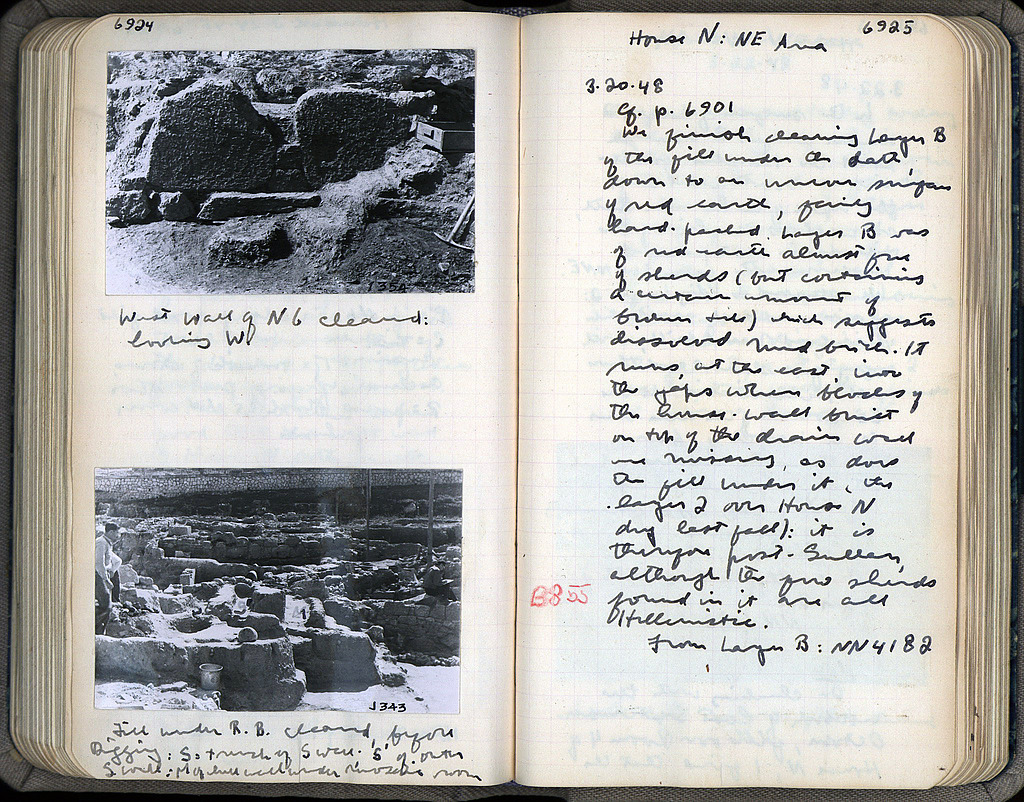 6924
1354
West Wall of N6 cleared:
looking W
J343
Fill under R.B. cleared, before
Digging: S. trench of S wall. S of outer
S wall: under mosaic room
6925
House N: NE Area
3.20.48
cf. p. 6901
We finish cleaning Layer B
of the fill under the bath,
down to an uneven surface
of red earth, fairly
hard-packed. Layer B was
of red earth almost free
of sherds (but containing
a certain amount of
broken tile) which suggests
dissolved mud brick. It
runs, at the east, into
the gaps where blocks of
the house-wall built
on top of the drain wall
are missing, as does
the fill under it, (the
layer 2 over House N
dug last fall): it is
therefore post-Sullan,
although the few sherds
found in it are all
Hellenistic.
B855
From Layer B: NN4182